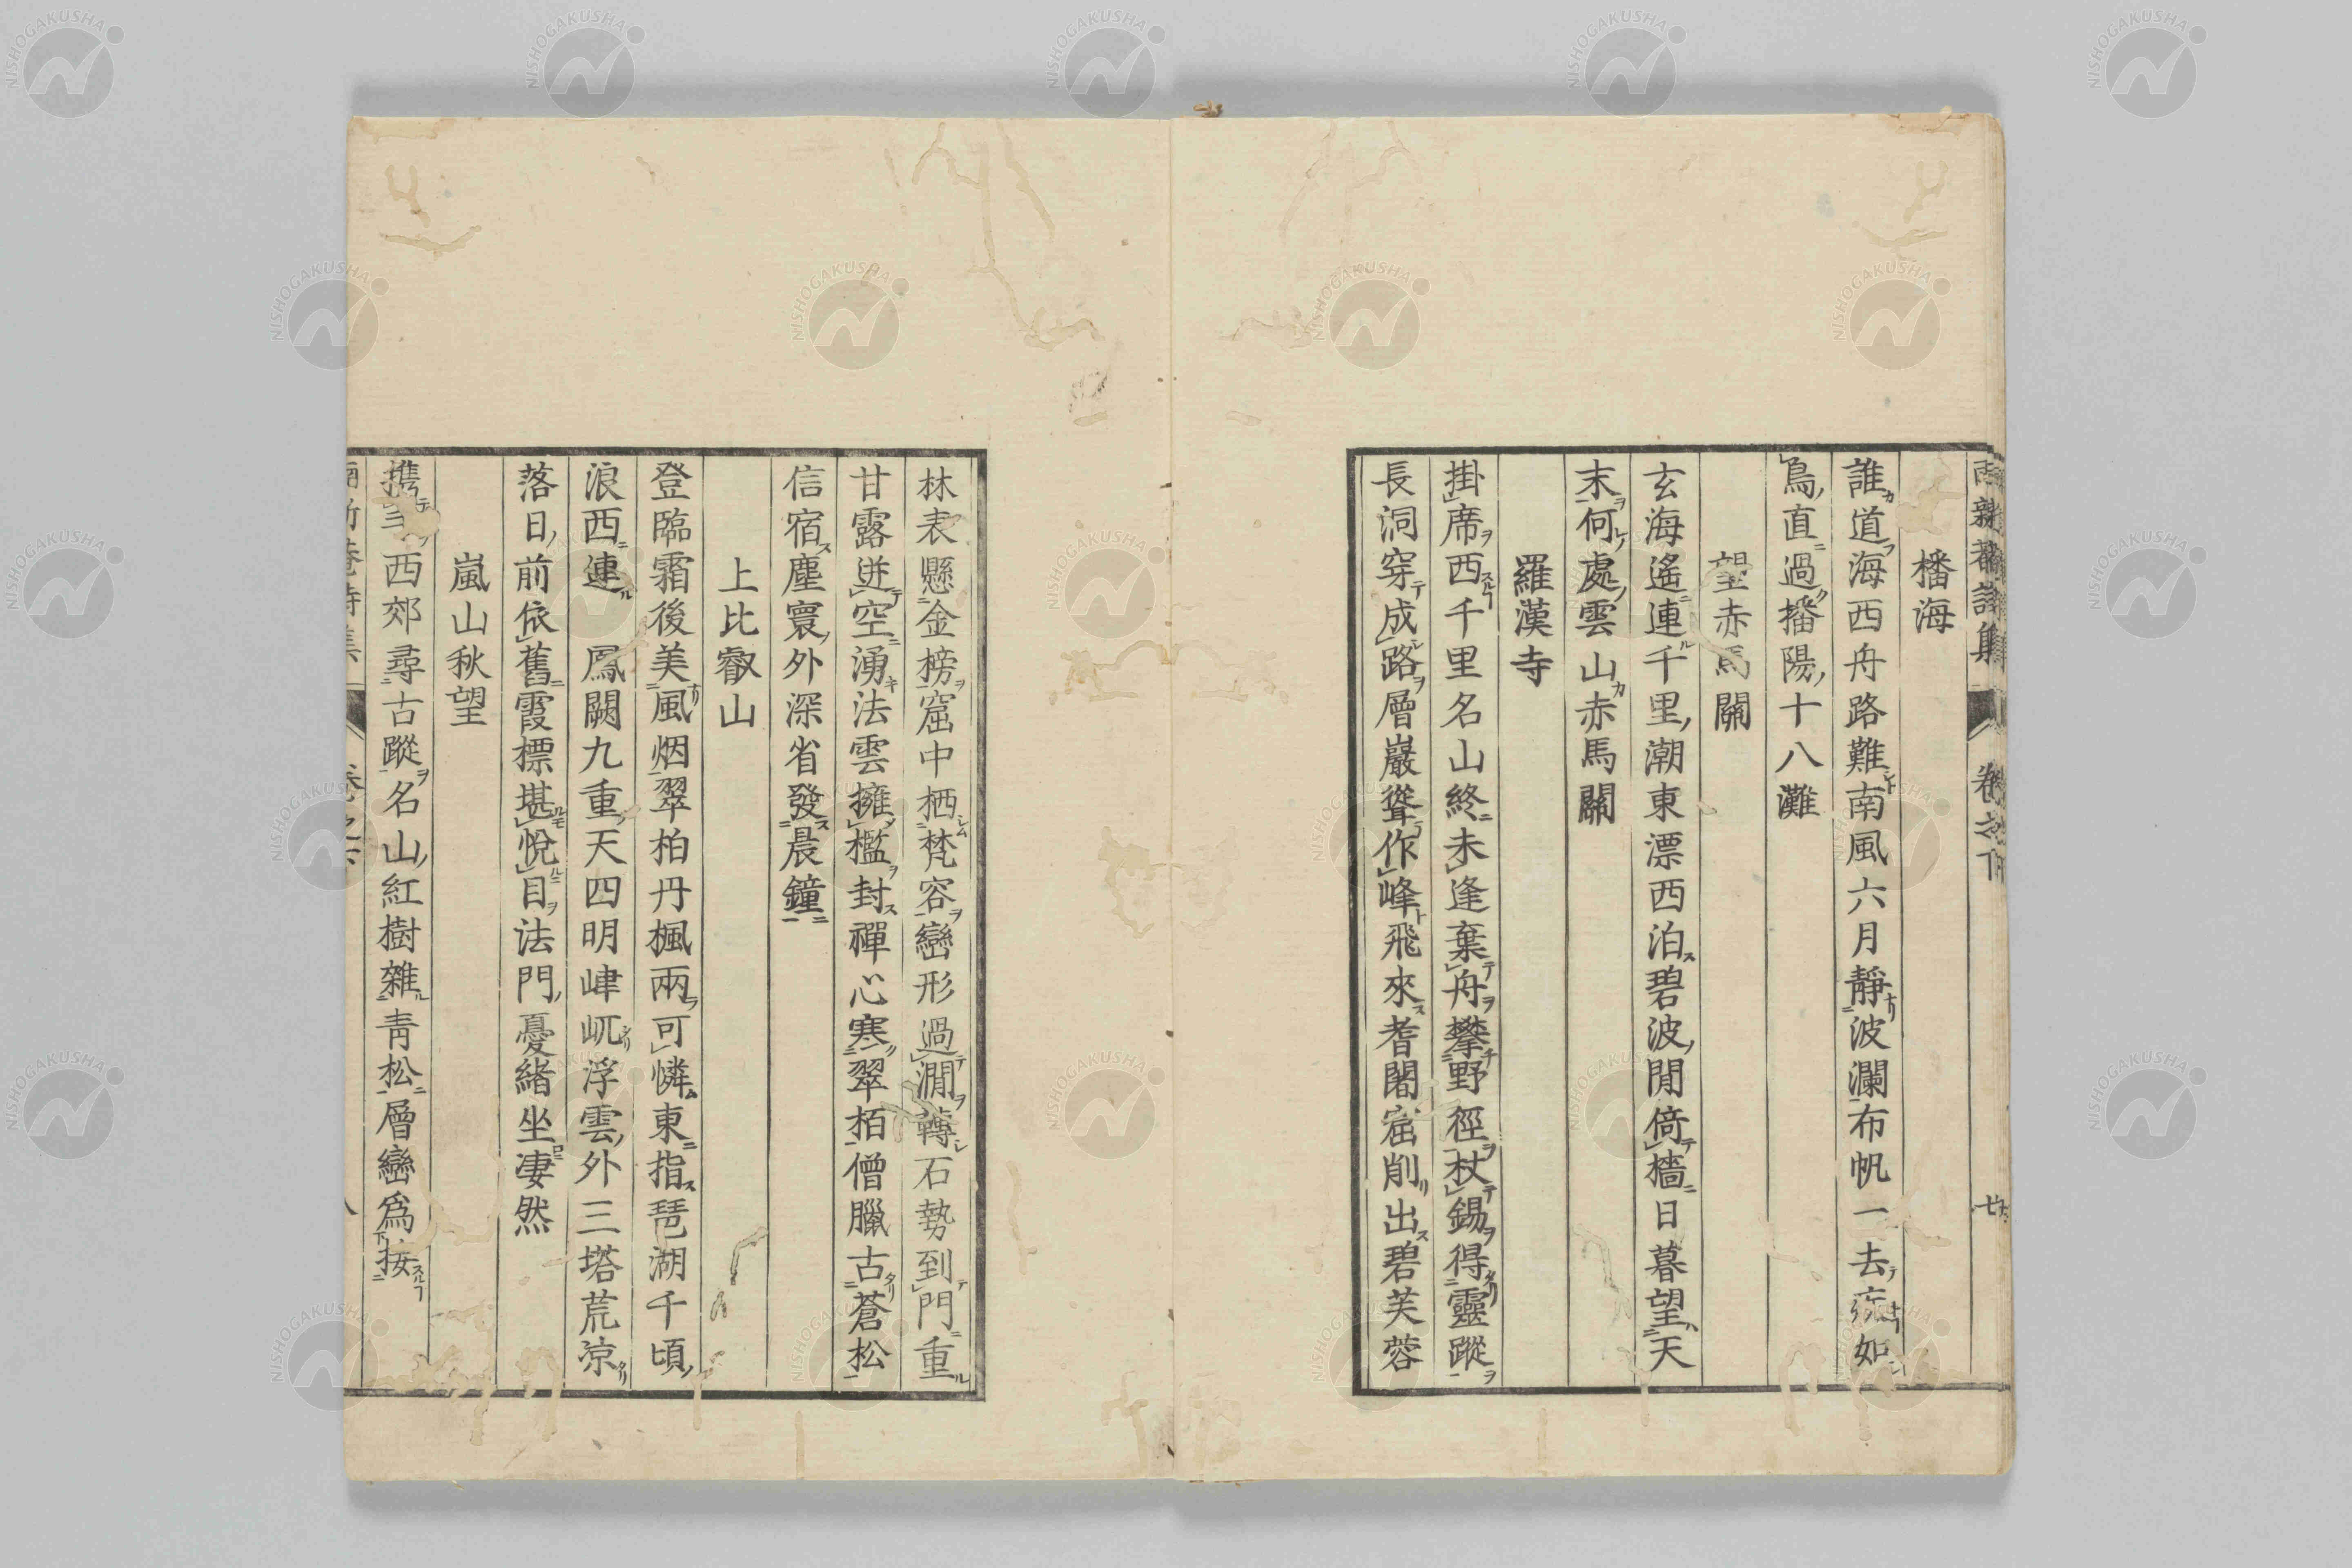 播海
誰道海西舟路難南風六月靜波瀾布帆一去疾如
鳥直過播陽十八灘
望赤馬關
玄海遙連千里潮東漂西泊碧波閒倚檣日暮望天
末何處雲山赤馬關
羅漢寺
掛席西千里名山終未逢棄舟攀野徑杖錫得靈蹤
長洞穿成路層巖聳作峰飛來耆闍窟削出碧芙蓉
林表懸金榜窟中栖梵容巒形過澗轉石勢到門重
甘露迸空湧法雲擁檻封禪心寒翠栢僧臘古蒼松
信宿塵寰外深省發晨鐘
上比叡山
登臨霜後美風烟翠柏丹楓兩可憐東指琵湖千頃
浪西連鳳闕九重天四明峍屼浮雲外三塔荒涼
落日前依舊霞標堪悅目法門憂緒坐凄然
嵐山秋望
携 西郊尋古蹤名山紅樹雜青松層巒爲按
NISHOGAKUSHA